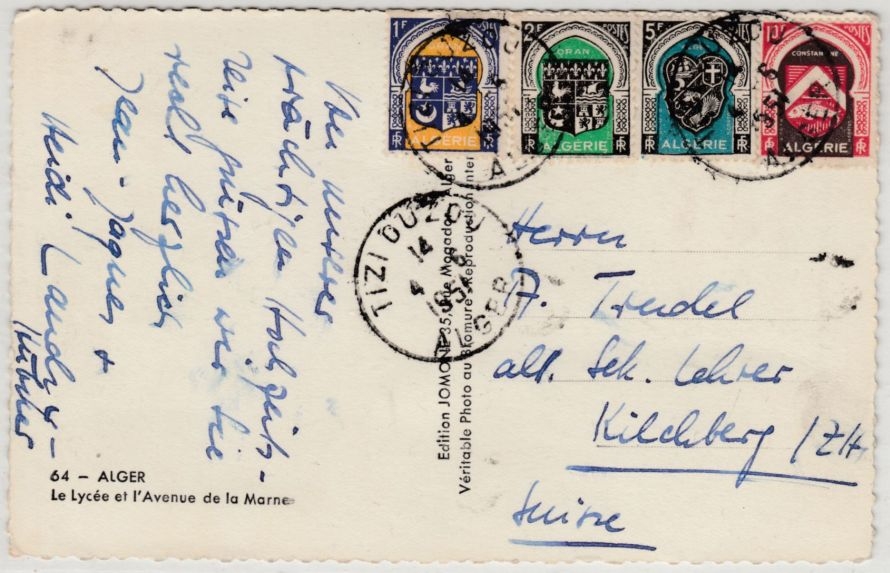 1F POSTES
ALGÉRIE
RF
2F POSTES
ORAN
ALGÉRIE
RF
5F POSTES
ALGÉRIE
RF
POSTES
CONSTANTINE
ALGÉRIE
RF
TIZI OUZOU
14
ALGER
Von unserer
prächtigen Hochzeits-
reise grüssen wir Sie
recht herzlich
Jean-Jaques &
Heidi Landry-
Herrn
A. Trudel
alt. Sek. Lehrer
Kilchberg / ZH.
Suisse
Edition JOMONE 35, Rue Mogador - Alger
Véritable Photo au Bromure - Reproduction Inter
64 – ALGER
Le Lycée et l'Avenue de la Marne